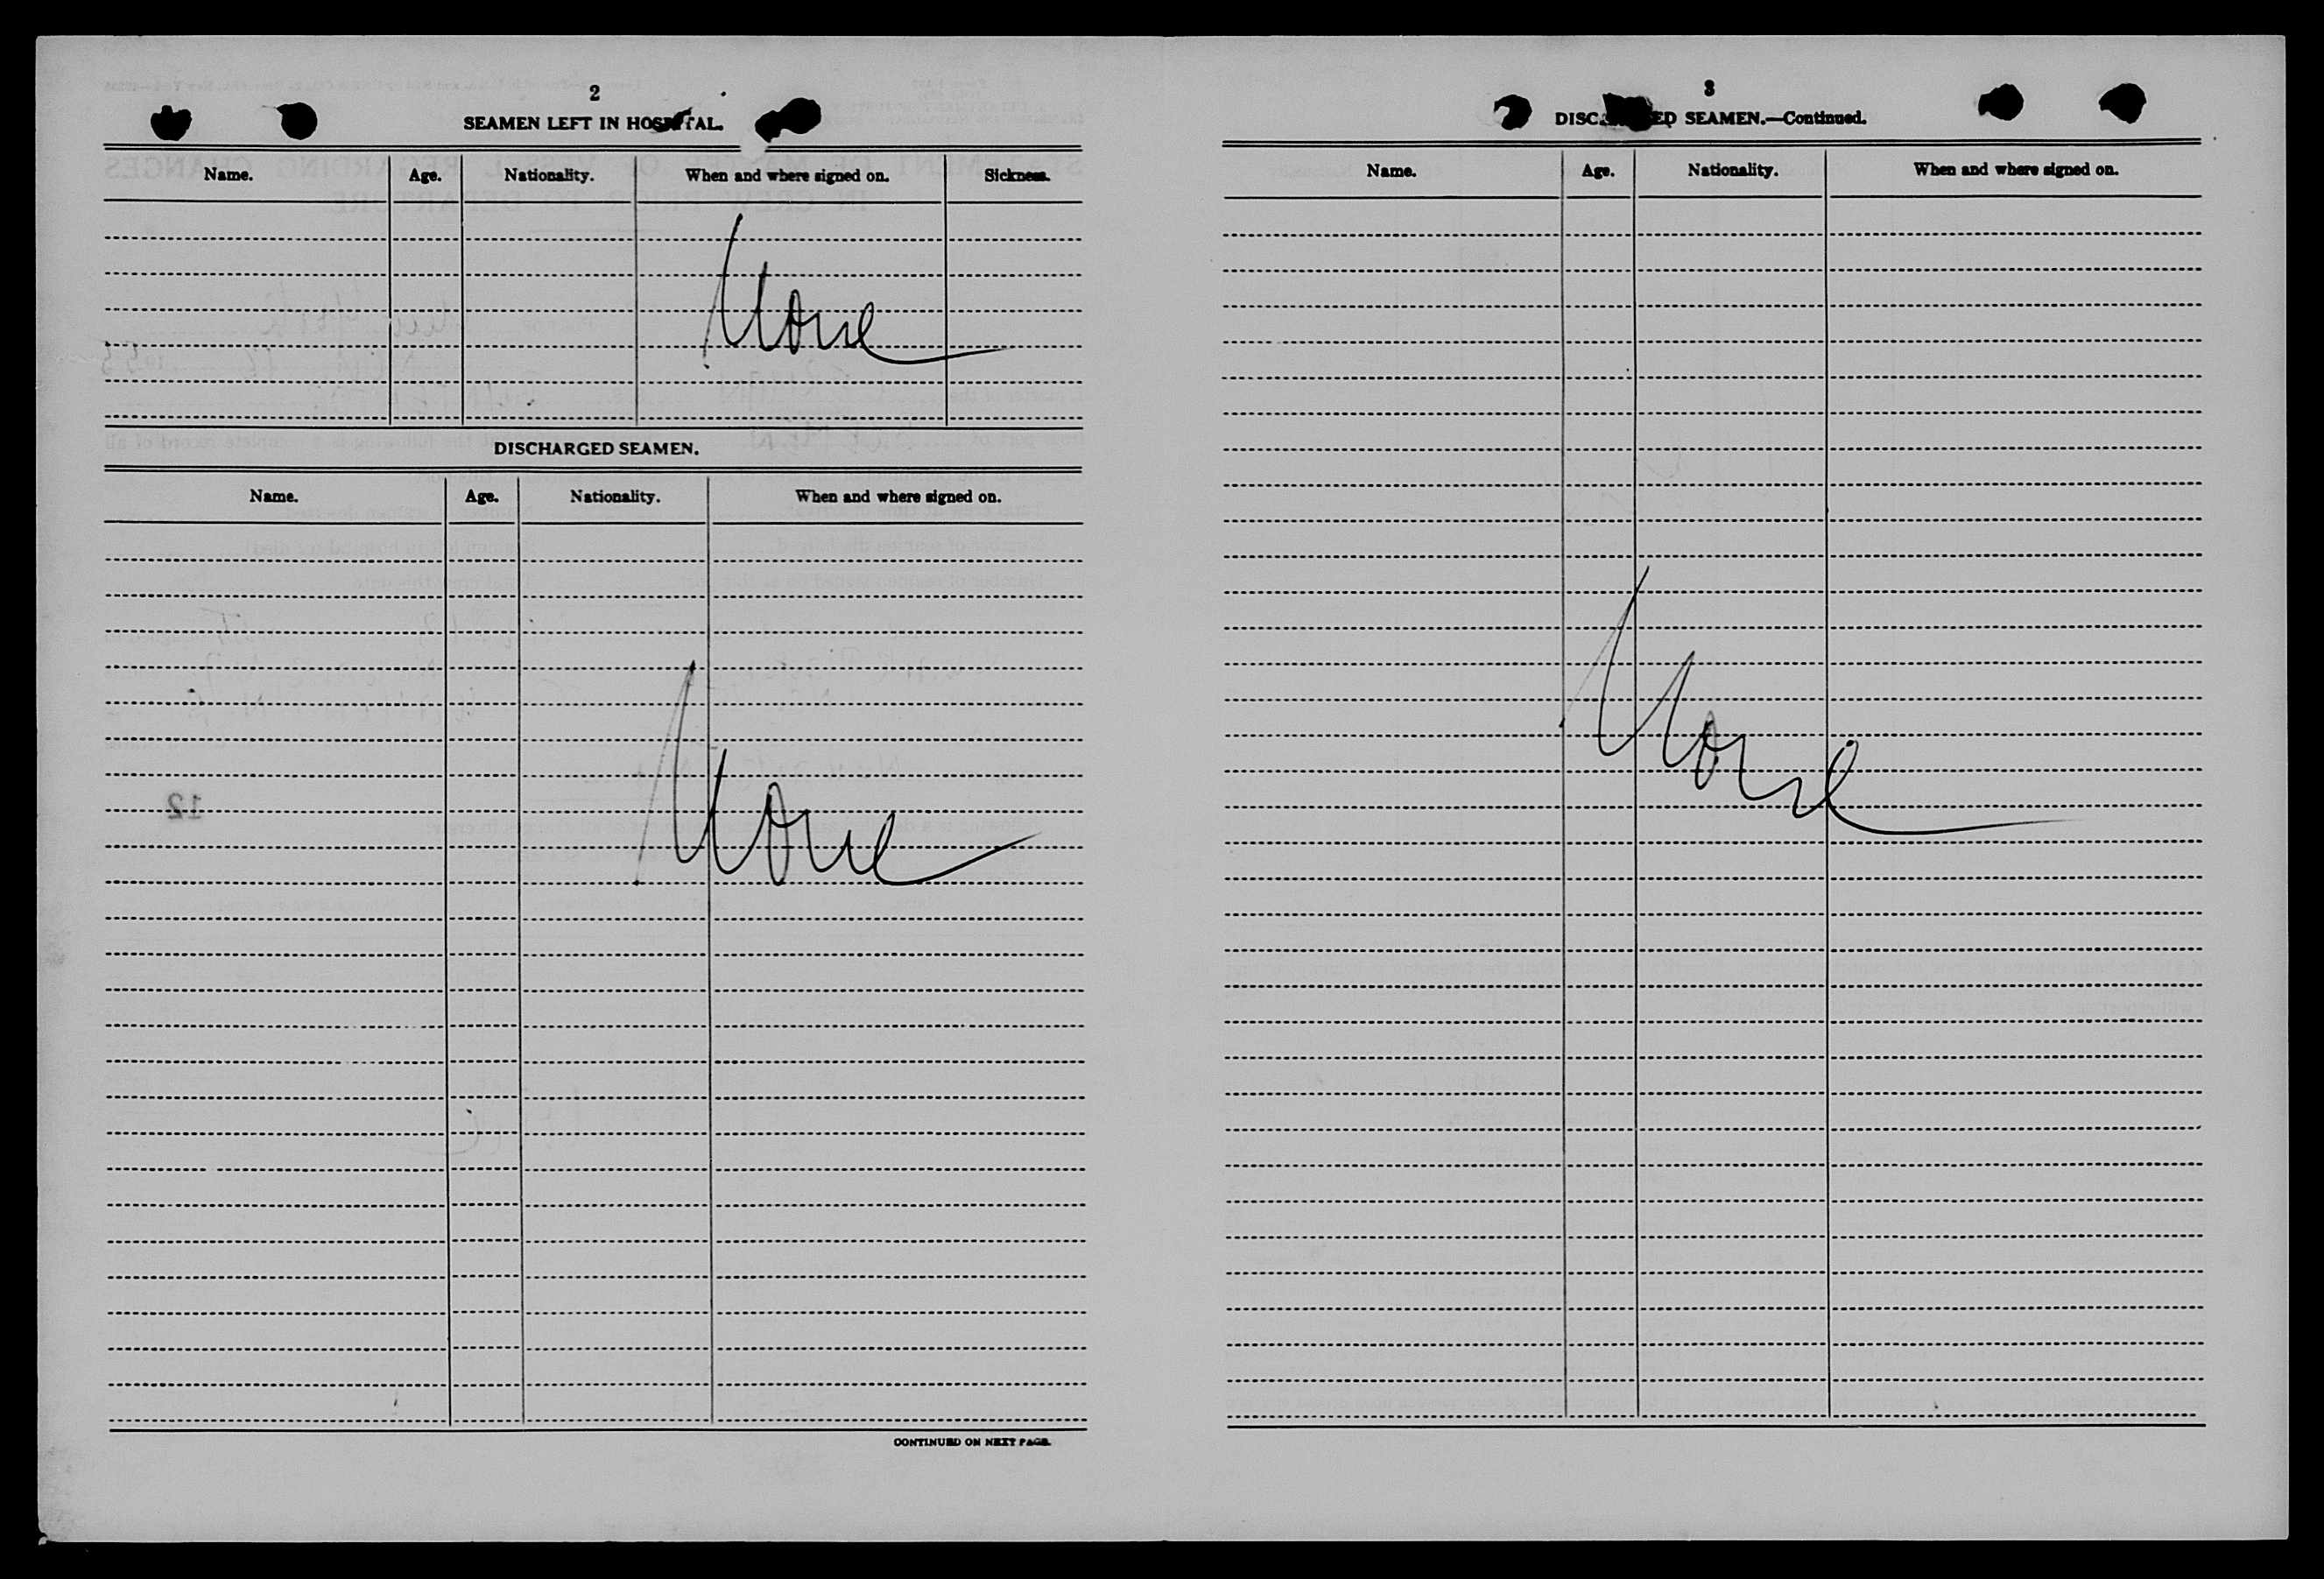 2
SEAMEN LEFT IN HOSPITAL.
Name. Age. Nationality. When and where signed on. Sickness.
None
DISCHARGED SEAMEN.
Name. Age. Nationality. When and where signed on.
None
12
CONTINUED ON NEXT PAGE.
3
DISCHARGED SEAMEN.—Continued.
Name. Age. Nationality. When and where signed on.
None